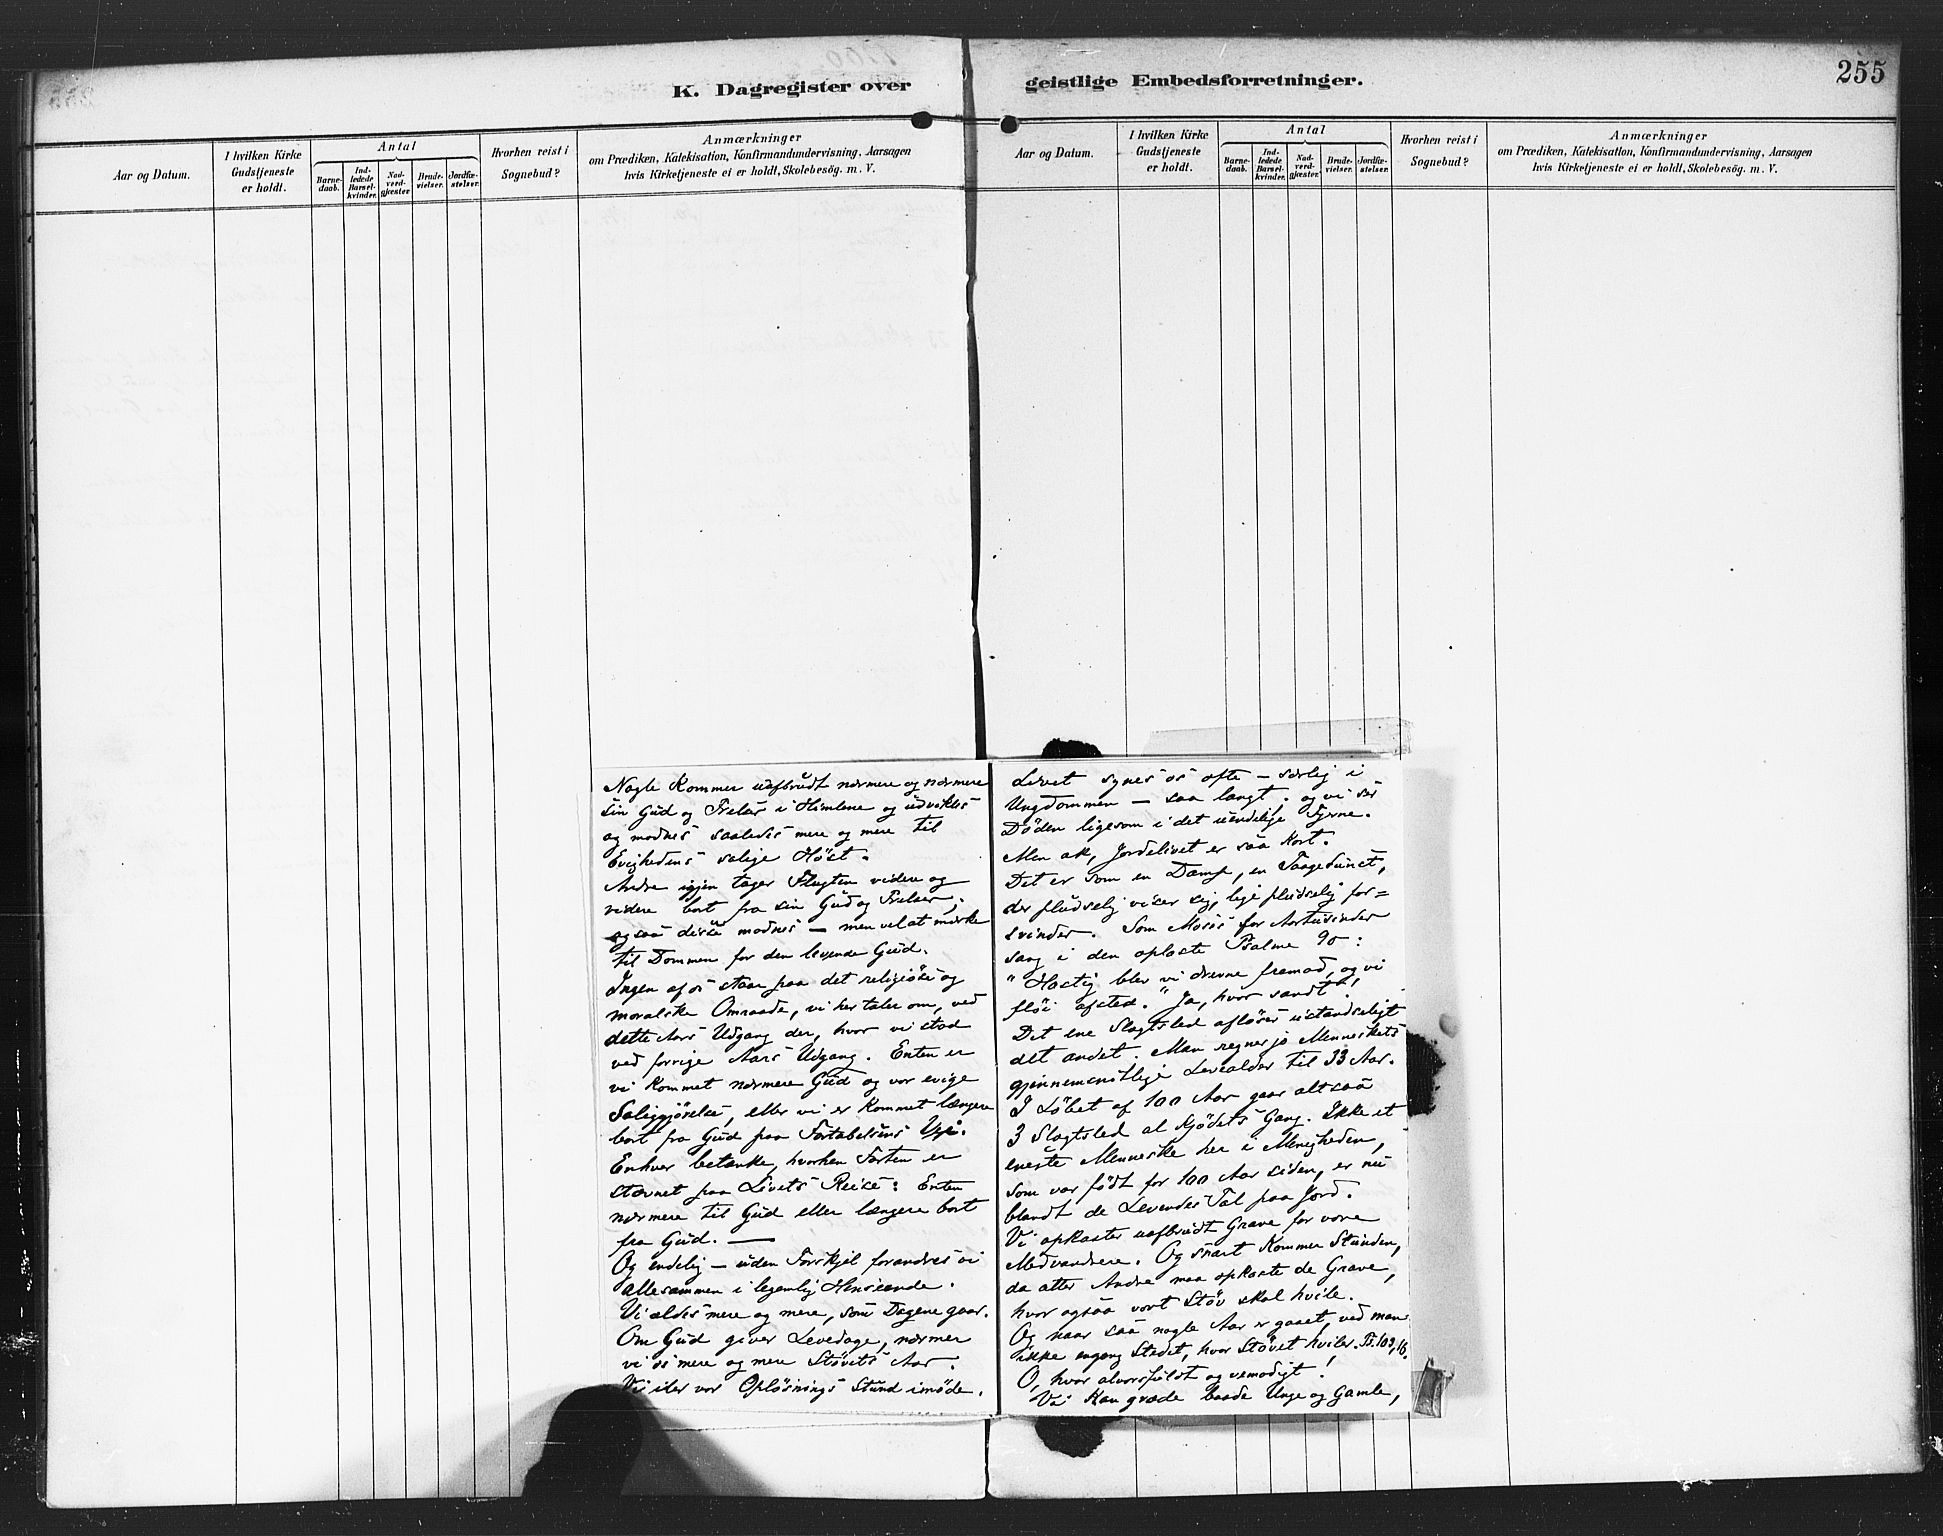 K. Dagregister over
geistlige Embedsforretninger.
255
Aar og Datum.
I hvilken Kirke
Gudstjeneste
er holdt.
Antal
Barne-
daab.
Ind-
ledede
Barsel-
kvinder.
Nad-
verd-
gjæster.
Brude-
vielser.
Jordfæ-
stelser.
Hvorhen reist i
Sognebud?
Anmærkninger
om Prædiken, Katekisation, Konfirmandundervisning, Aarsagen
hvis Kirketjeneste ei er holdt, Skolebesög. m. V.
Aar og Datum.
I hvilken Kirke
Gudstjeneste
er holdt.
Antal
Barne-
daab.
Ind-
ledede
Barsel-
kvinder.
Nad-
verd-
gjæster.
Brude-
vielser.
Jordfæ-
stelser.
Hvorhen reist i
Sognebud?
Anmærkninger
om Prædiken, Katekisation, Konfirmandundervisning, Aarsagen
hvis Kirketjeneste ei er holdt, Skolebesög. m. V.
Nogle kommer uafbrudt nærmere og nærmere
sin Gud og Frelser i Himlene og udvikles
og modnes saaledes mere og mere til
Evighedens salige Høst.
Andre igjen tager Flugten videre og
videre bort fra sin Gud og Frelser;
ogsaa disse modnes – men vel at mærke
til Dommen for den levende Gud.
Ingen af os staar paa det religiøse og
moralske Omraade, vi her taler om, ved
dette Aars Udgang der, hvor vi stod
ved forrige Aars Udgang. Enten er
vi kommet nærmere Gud og vor evige
Saliggjørelse, eller vi er kommet længere
bort fra Gud paa Fortabelsens Vei.
Enhver betænke, hvorhen Farten er
stævnet paa Livets Reise: Enten
nærmere til Gud eller længere bort
fra Gud. —
Og endelig – uden Forskjel forandres vi
allesammen i legemlig Henseende.
Vi ældes mere og mere, som Dagene gaar.
Om Gud giver Levedage, nærmer
vi os mere og mere Støvets Aar.
Vi iler vor Opløsnings Stund imøde.
Livet synes os ofte – særlig i
Ungdommen – saa langt; og vi ser
Døden ligesom i det uendelige Fjerne.
Men ak, Jordelivet er saa kort.
Det er som en Damp, en Taagedunst,
der pludselig viser sig, lige pludselig for=
svinder. Som Moses for Aartusinder
sang i den oplæste Psalme 90:
"Hastig blev vi drevne fremad, og vi
fløi afsted." Ja, hvor sandt!
Det ene Slægtsled afløser ustandseligt
det andet. Man regner jo Menneskets
gjennemsnitlige Levealder til 33 Aar.
I Løbet af 100 Aar gaar altsaa
3 Slægtsled al Kjødets Gang. Ikke et
eneste Menneske her i Menigheden,
som var født for 100 Aar siden, er nu
blandt de Levendes Tal paa Jord.
Vi opkaster uafbrudt Grave for vore
Medvandrere. Og snart kommer Stunden,
da atter Andre maa opkaste de Grave,
hvor ogsaa vort Støv skal hvile.
Og naar saa nogle Aar er gaaet, ved man
ikke engang Stedet, hvor Støvet hviler. Ps. 103,16.
O, hvor alvorsfuldt og vemodigt!
Vi kan græde baade Unge og Gamle,